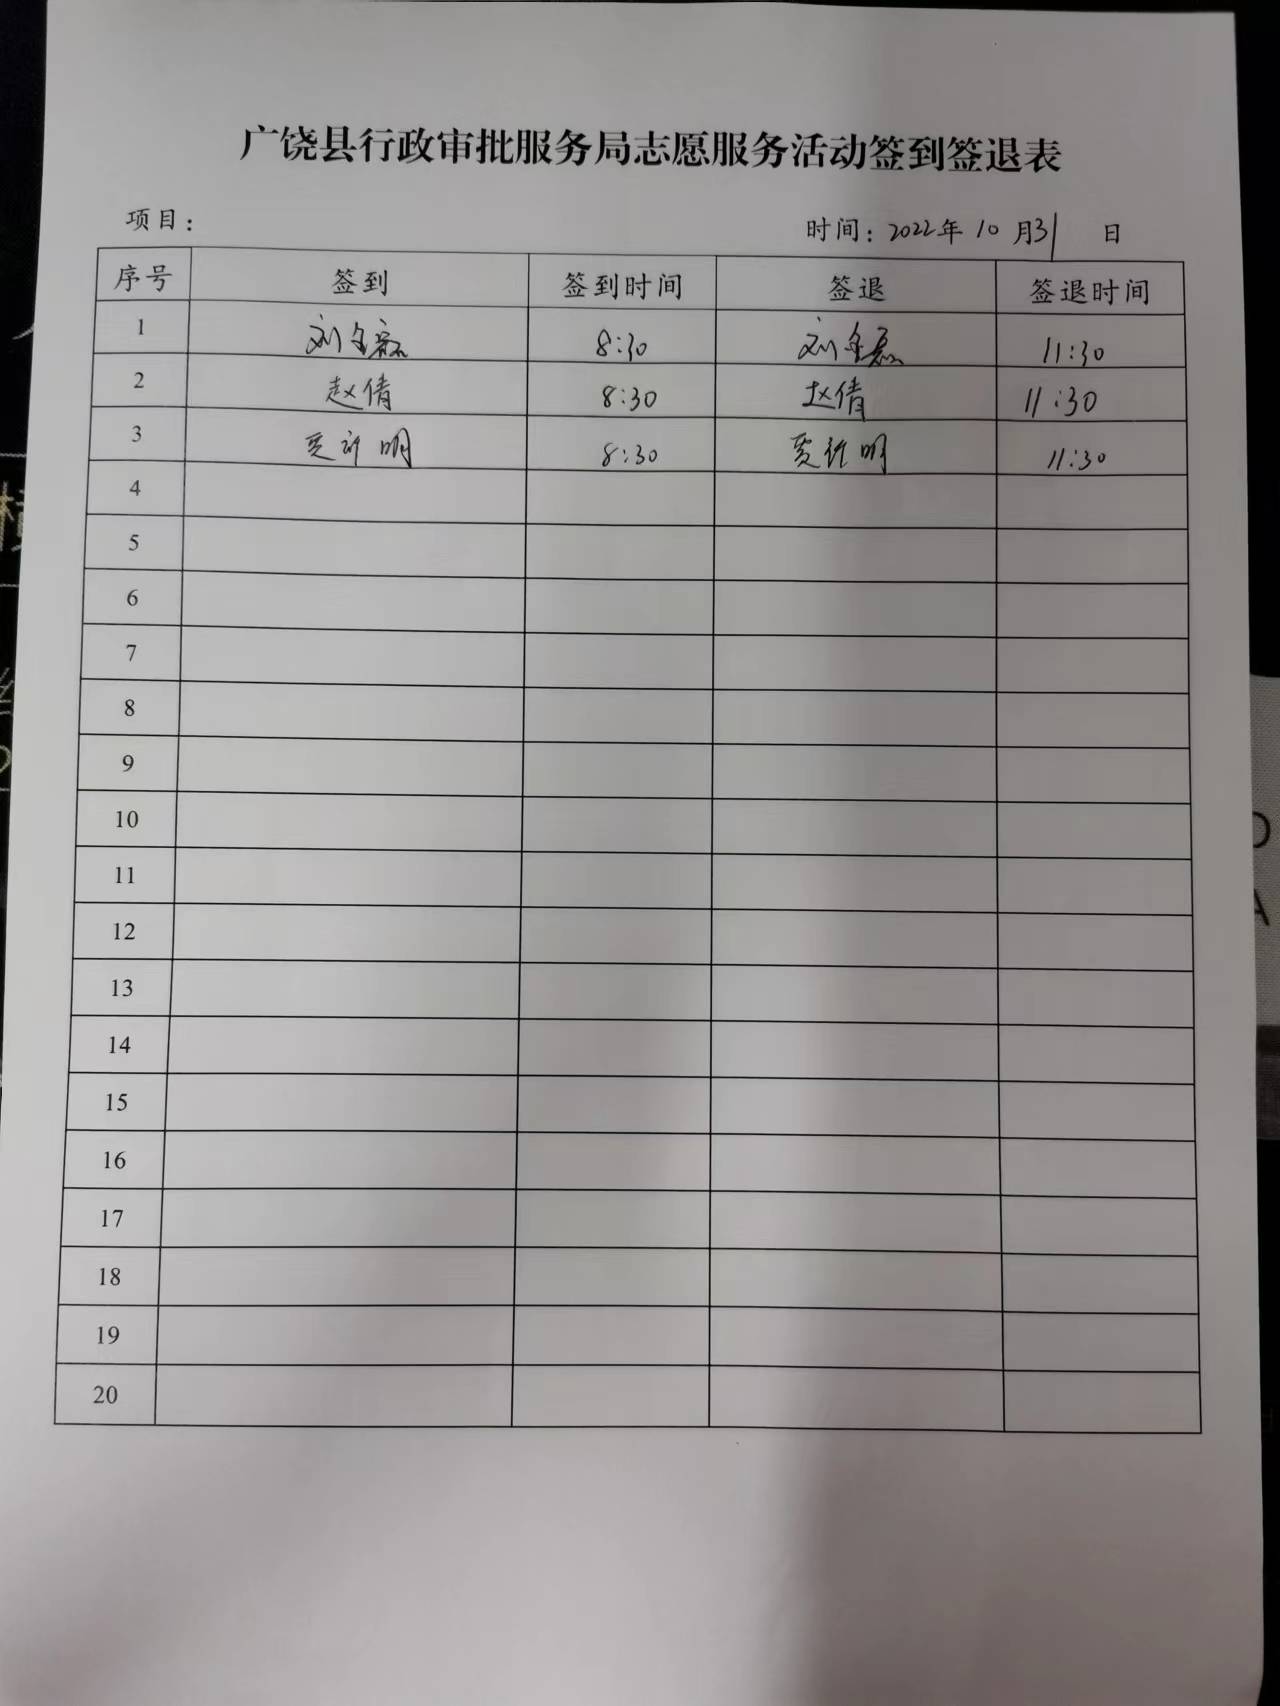 广饶县行政审批服务局志愿服务活动签到签退表
项目：
时间：2022年 10 月31 日
序号 签到 签到时间 签退 签退时间
1 刘金磊 8:30 刘金磊 11:30
2 赵倩 8:30 赵倩 11:30
3 贾 明 8:30 贾 明 11:30
4
5
6
7
8
9
10
11
12
13
14
15
16
17
18
19
20